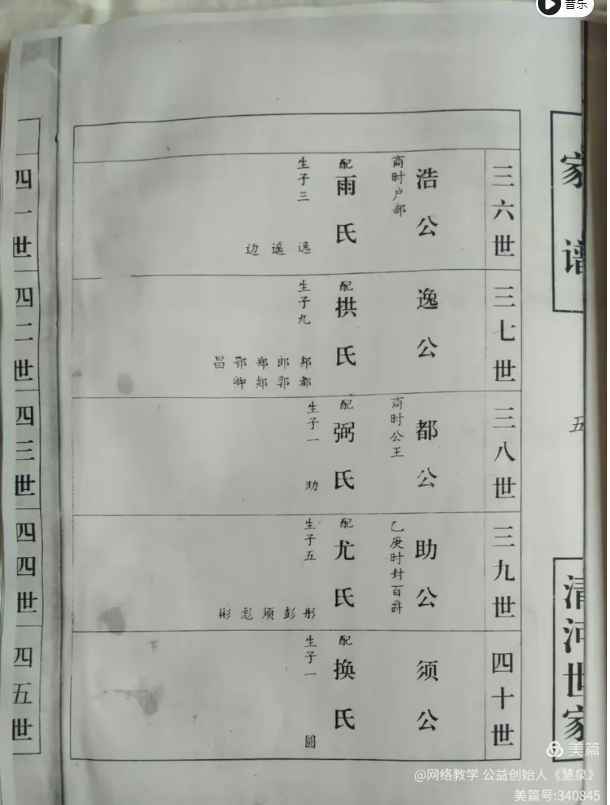 音乐
家谱
五
清河世家
三六世
浩公
商时户部
配雨氏
生子三
逸遥边
三七世
逸公
配拱氏
生子九
邦郎郑鄂昌
都郭郏卿
三八世
都公
商时公王
配弼氏
生子一
助
三九世
助公
乙庚时封百爵
配尤氏
生子五
彤彭须彪彬
四十世
须公
配换氏
生子一
圆
四一世
四二世
四三世
四四世
四五世
美篇
@网络教学 公益创始人《慧泉》
美篇号:340845